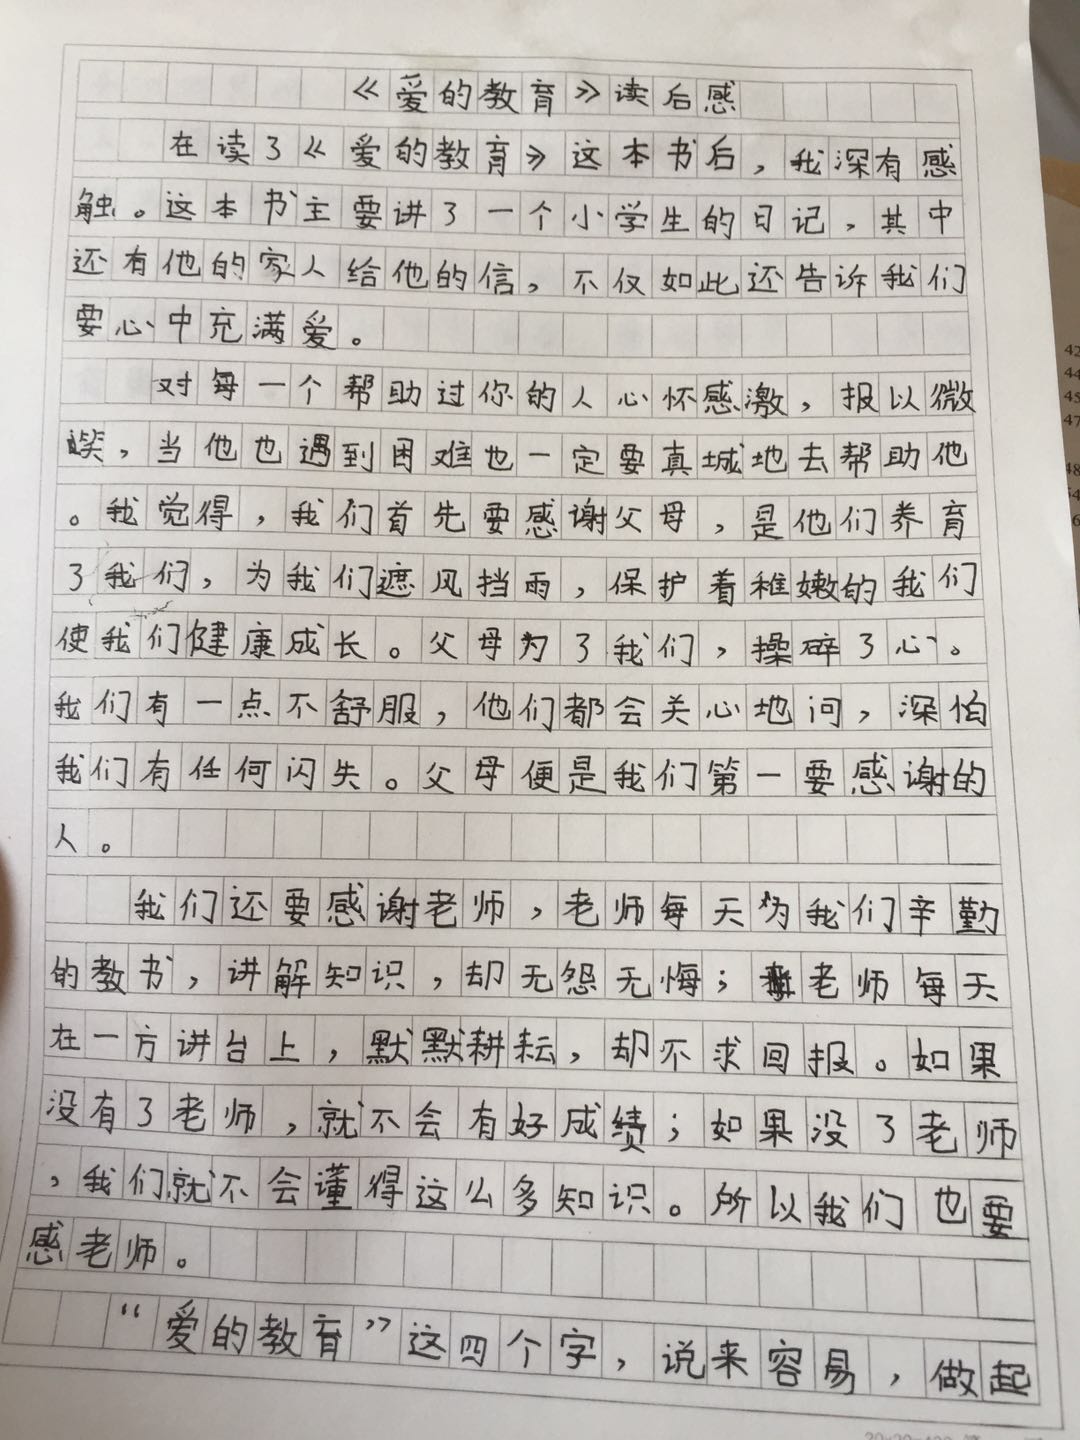 《爱的教育》读后感
在读了《爱的教育》这本书后，我深有感
触。这本书主要讲了一个小学生的日记，其中
还有他的家人给他的信，不仅如此还告诉我们
要心中充满爱。
对每一个帮助过你的人心怀感激，报以微
笑，当他也遇到困难也一定要真城地去帮助他
。我觉得，我们首先要感谢父母，是他们养育
了我们，为我们遮风挡雨，保护着稚嫩的我们
使我们健康成长。父母为了我们，操碎了心。
我们有一点不舒服，他们都会关心地问，深怕
我们有任何闪失。父母便是我们第一要感谢的
人。
我们还要感谢老师，老师每天为我们辛勤
的教书，讲解知识，却无怨无悔；老师每天
在一方讲台上，默默耕耘，却不求回报。如果
没有了老师，就不会有好成绩；如果没了老师
，我们就不会懂得这么多知识。所以我们也要
感老师。
“爱的教育”这四个字，说来容易，做起